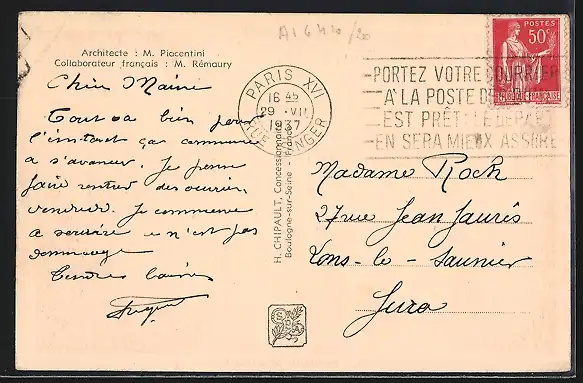 A1644/20
Architecte : M. Piacentini
Collaborateur français : M. Rémaury
Tout va bien pour
l'instant ça commence
a s'avancer. Je pense
faire rentrer des
vendredi. Je commence
a n'est pas
dommage
Tendres
PARIS XVI
16 45
29 · VII
1937
RUE SINGER
PORTEZ VOTRE COURRIER
A LA POSTE DES
EST PRÊT: LE DÉPART
EN SERA MIEUX ASSURÉ
POSTES
50c
REPUBLIQUE FRANÇAISE
H. CHIPAULT, Concessionnaire
Boulogne-sur-Seine - France
Madame Roch
27 rue Jean Jaurès
Lons-le-Saunier
Jura